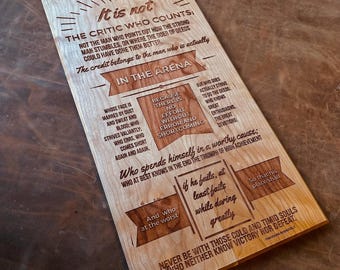 It is not
THE CRITIC WHO COUNTS,
NOT THE MAN WHO POINTS OUT HOW THE STRONG
MAN STUMBLES, OR WHERE THE DOER OF DEEDS
COULD HAVE DONE THEM BETTER.
The credit belongs to the man who is actually
IN THE ARENA
WHOSE FACE IS
MARRED BY DUST
AND SWEAT AND
BLOOD; WHO
STRIVES VALIANTLY;
WHO ERRS, WHO
COMES SHORT
AGAIN AND AGAIN,
BECAUSE
THERE IS
NO
EFFORT
WITHOUT
ERROR AND
SHORTCOMING
BUT WHO DOES
ACTUALLY STRIVE
TO DO THE DEEDS;
WHO KNOWS
GREAT
ENTHUSIASMS,
THE GREAT
DEVOTIONS
Who spends himself in a worthy cause;
WHO AT BEST KNOWS IN THE END THE TRIUMPH OF HIGH ACHIEVEMENT
And who
at the worst
if he fails, at
least fails
while daring
greatly
NEVER BE WITH THOSE COLD AND TIMID SOULS
WHO NEITHER KNOW VICTORY NOR DEFEAT.